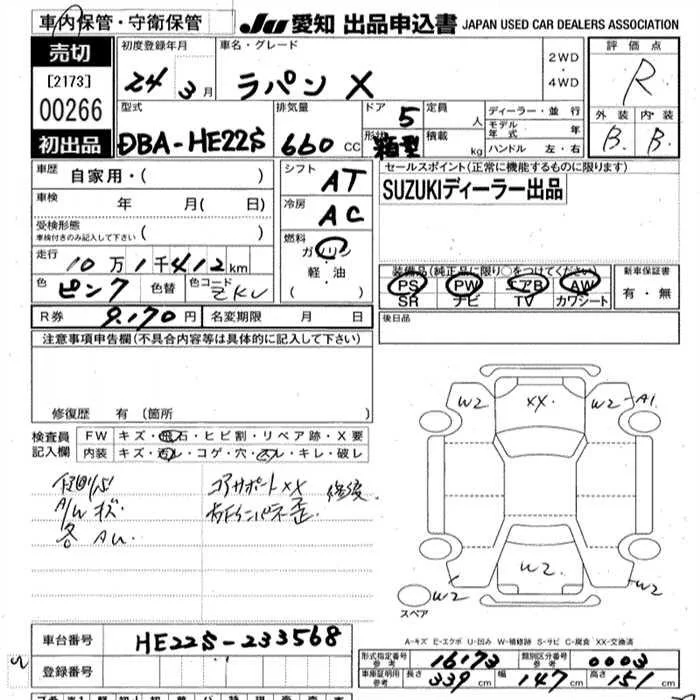 車内保管・守衛保管
JU 愛知 出品申込書 JAPAN USED CAR DEALERS ASSOCIATION
売切
[2173]
00266
初出品
初度登録年月
24 3月
車名・グレード
ラパン X
2WD
・
4WD
評価点
R
外装 内装
B. B.
型式
DBA-HE22S
排気量
660 CC
ドア 5
形状 箱型
定員 人
積載 kg
ディーラー・並行
モデル年式 年
ハンドル 左・右
車歴 自家用・( )
車検 年 月( 日)
受検形態
車検付きのみ記入して下さい ( )
走行
10万1千412km
色 ピンク 色替 色コード ZKU
シフト AT
冷房 AC
燃料
ガソリン
軽・油
( )
セールスポイント(正常に機能するものに限ります)
SUZUKIディーラー出品
装備品(純正品に限り○をつけてください)
PS PW エアB AW
SR ナビ TV カワシート
新車保証書
有・無
R券 9.170円 名変期限 月 日
後日品
注意事項申告欄(不具合内容等は具体的に記入して下さい)
修復歴 有(箇所 )
検査員記入欄
FW キズ・飛石・ヒビ割・リペア跡・X要
内装 キズ・汚レ・コゲ・穴・スレ・キレ・破レ
A/W キズ
各 AU.
コアサポートXX 修復
W2 XX W2 A1
W2
W2 W2
スペア
A-キズ E-エクボ U-凹み W-補修跡 S-サビ C-腐食 XX-交換済
車台番号 HE22S-233568
登録番号
形式指定番号 参考 16173 類別区分番号 参考 0003
車庫証明用 参考 長さ 339cm 幅 147cm 高さ 151cm